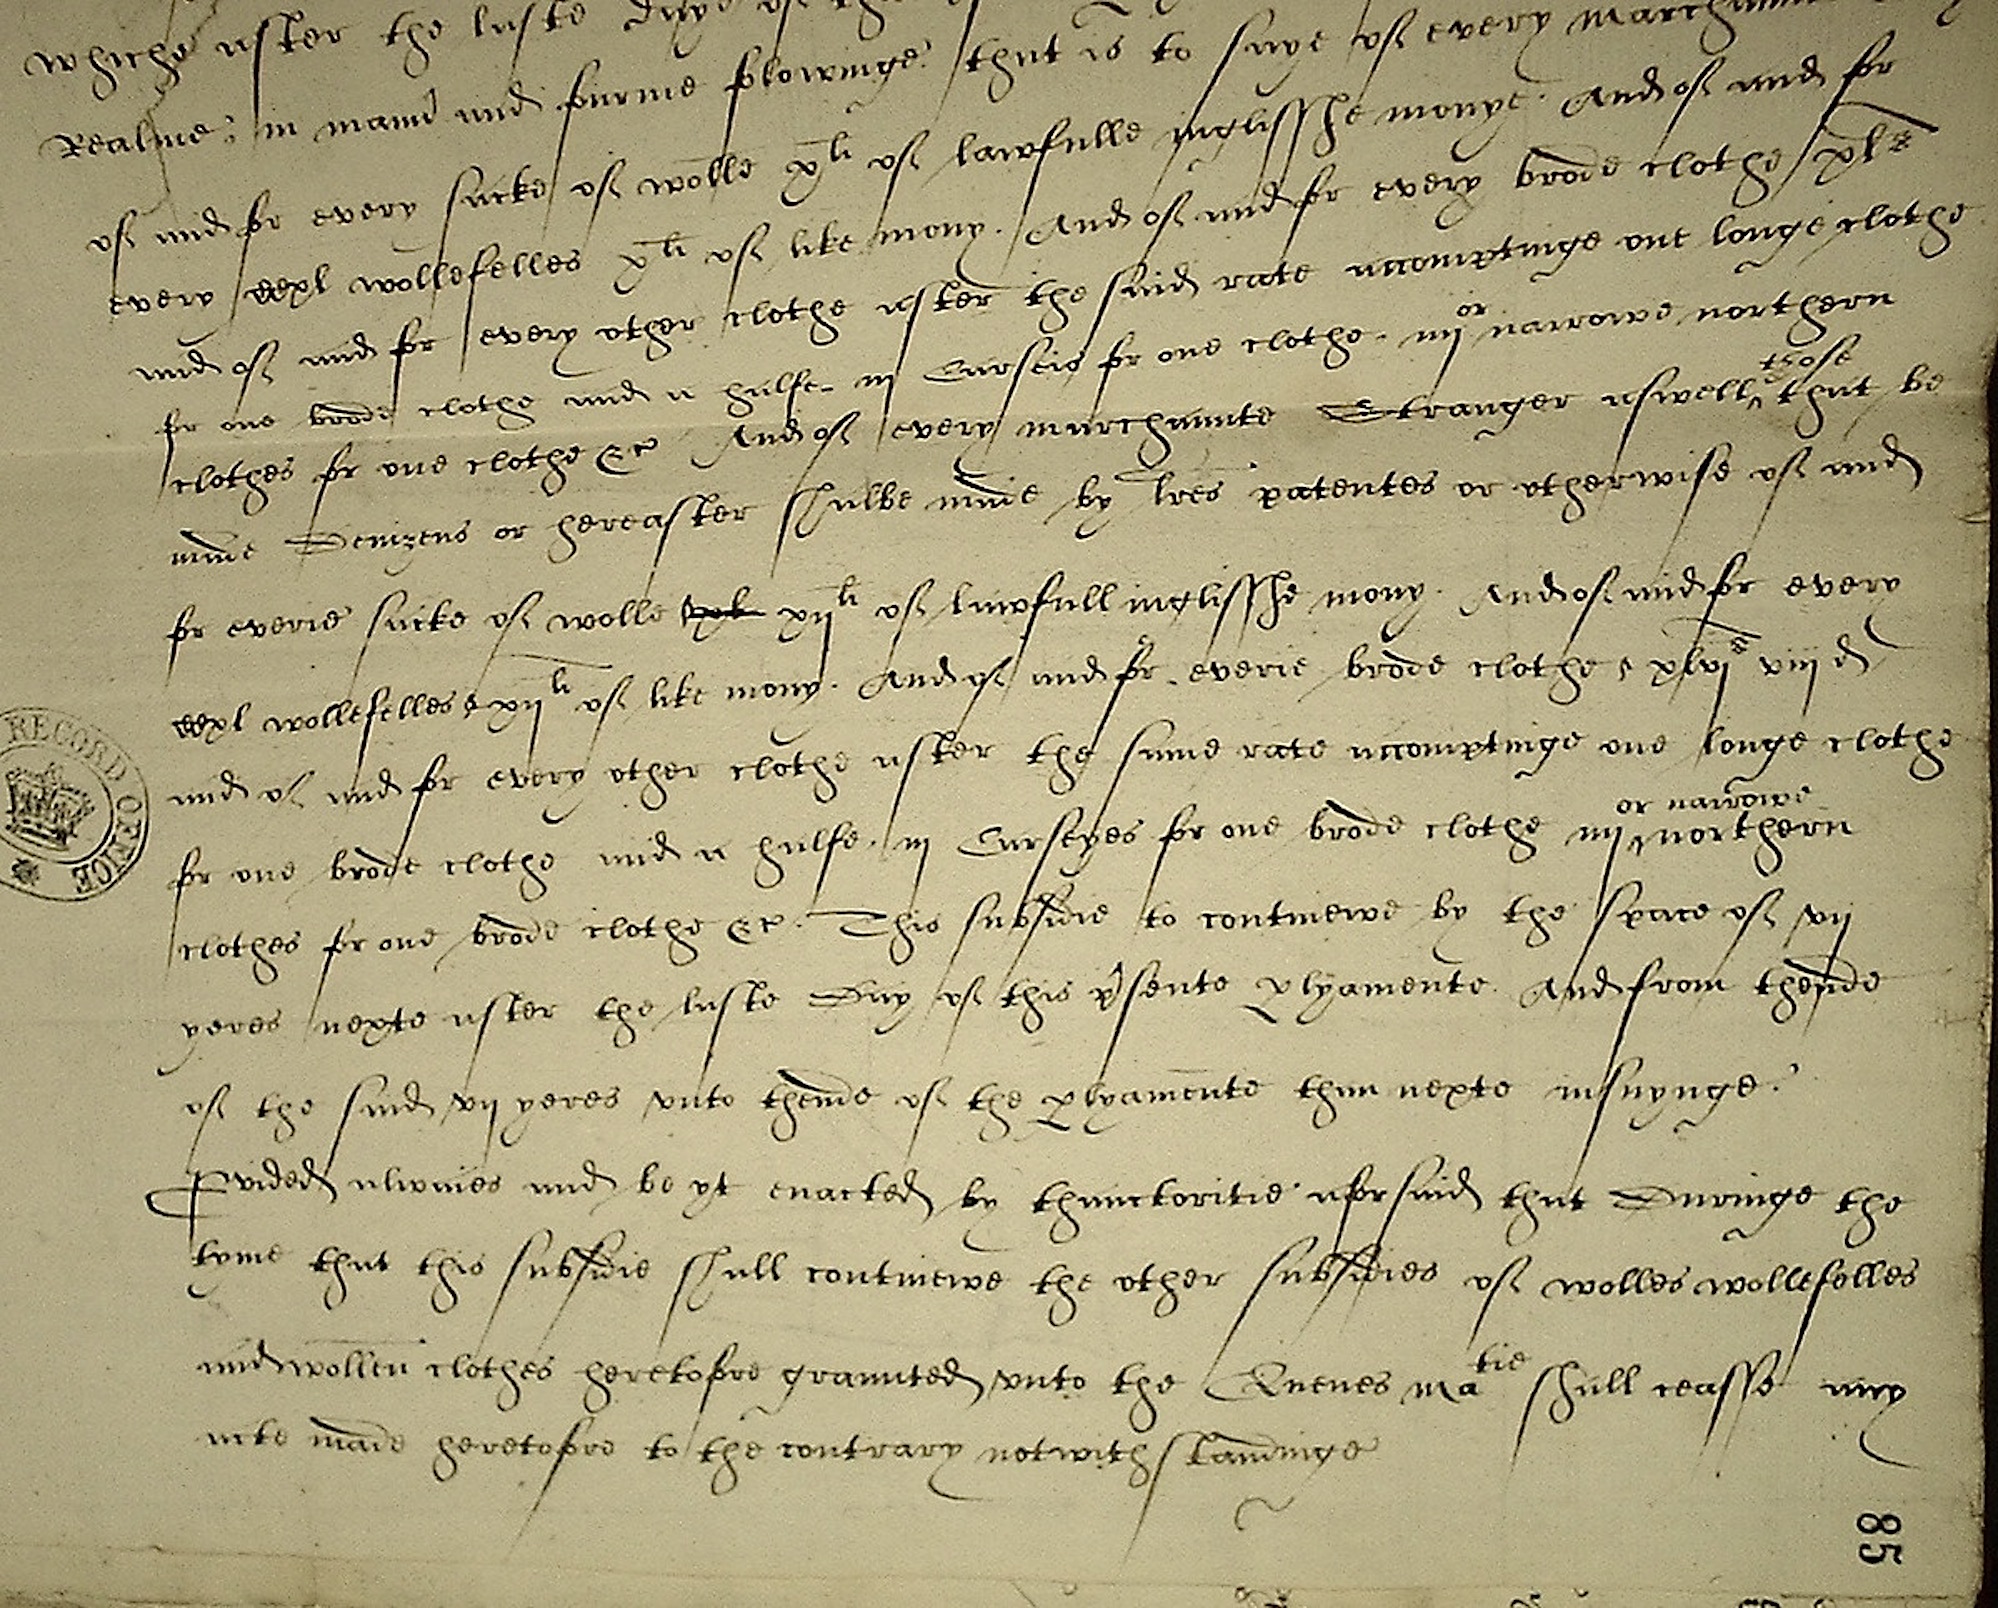 whiche after the laste daye of the
Realme: in maner and fourme folowinge: that is to saye of every marchaunt
of and for every sacke of wolle xli of lawfulle inglisshe monye. And of and for
every ccxl wollefelles xli of like mony. And of and for every brode clothe xls
and of and for every other clothe after the said rate accomptinge one longe clothe
for one brode clothe and a halfe. iij Carseis for one clothe. iiij or narrowe northern
clothes for one clothe &c And of every marchaunte Stranger aswell those that be
made Denizens or hereafter shalbe made by lres patentes or otherwise of and
for everie sacke of wolle xijli of lawfull inglisshe mony. And of and for every
ccxl wollefelles xijli of like mony. And of and for everie brode clothe xlvjs viijd
and of and for every other clothe after the same rate accomptinge one longe clothe
for one brode clothe and a halfe. iij Carseyes for one brode clothe iiij or narrowe northern
clothes for one brode clothe &c. This subsidie to continewe by the space of vij
yeres nexte after the laste Day of this psente plyamente. And from thende
of the said vij yeres vnto thende of the plyamente than nexte insuynge.
Pvided alwaies and be yt enacted by thauctoritie aforsaid that Duringe the
tyme that this subsidie shall continewe the other subsidies of wolles wollefelles
and wollen clothes heretofore graunted vnto the Quenes matie shall ceasse any
acte made heretofore to the contrary notwithstandinge
RECORD OFFICE
85